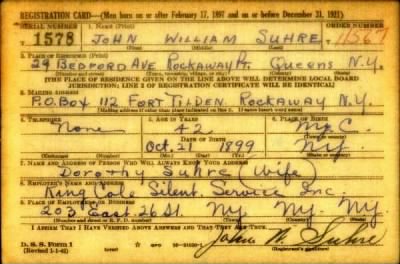 REGISTRATION CARD—(Men born on or after February 17, 1897 and on or before December 31, 1921)
SERIAL NUMBER 1. NAME (Print) ORDER NUMBER
1578 JOHN WILLIAM SUHRE 1567
(First) (Middle) (Last)
2. PLACE OF RESIDENCE (Print)
29 BEDFORD AVE ROCKAWAY Pt. QUEENS N.Y.
(Number and street) (Town, township, village, or city) (County) (State)
[THE PLACE OF RESIDENCE GIVEN ON THE LINE ABOVE WILL DETERMINE LOCAL BOARD
JURISDICTION; LINE 2 OF REGISTRATION CERTIFICATE WILL BE IDENTICAL]
3. MAILING ADDRESS
P.O. BOX 112 FORT TILDEN ROCKAWAY N.Y.
[Mailing address if other than place indicated on line 2. If same insert word same]
4. TELEPHONE 5. AGE IN YEARS 6. PLACE OF BIRTH
None 42 N.Y.C.
DATE OF BIRTH
Oct. 21 1899 N.Y.
(Mo.) (Day) (Yr.) (State or country)
7. NAME AND ADDRESS OF PERSON WHO WILL ALWAYS KNOW YOUR ADDRESS
Dorothy Suhre (wife)
8. EMPLOYER'S NAME AND ADDRESS
King Cole Silent Service Inc.
9. PLACE OF EMPLOYMENT OR BUSINESS
203 East 26 St. NY NY NY
(Number and street or R. F. D. number) (Town) (County) (State)
I AFFIRM THAT I HAVE VERIFIED ABOVE ANSWERS AND THAT THEY ARE TRUE.
D. S. S. Form 1
(Revised 1-1-42)
John W. Suhre
(Registrant's signature)